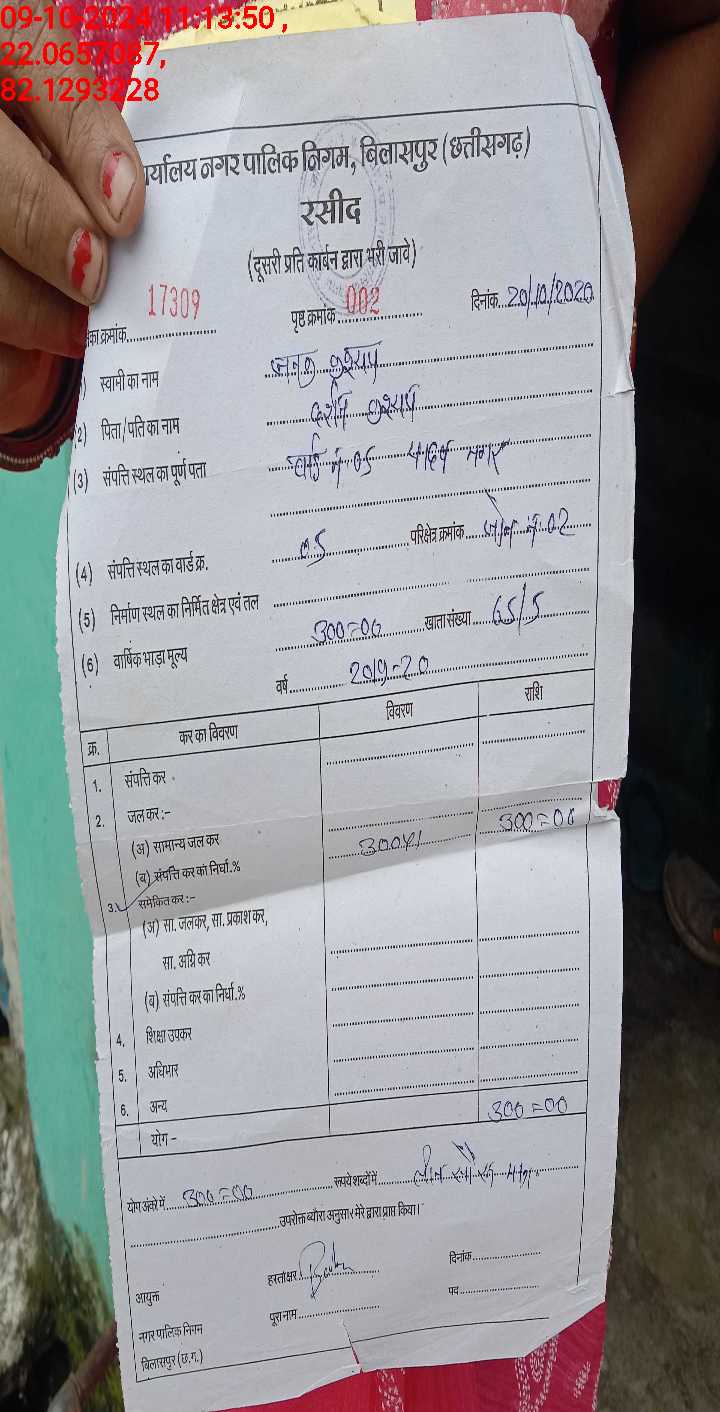 09-10-2024 11:13:50,
22.0657087,
82.1293228
र्यालय नगर पालिक निगम, बिलासपुर (छत्तीसगढ़)
रसीद
(दूसरी प्रति कार्बन द्वारा भरी जावे)
क्रमांक 17309 पृष्ठ क्रमांक 002 दिनांक 20/10/2020
स्वामी का नाम जनक कश्यप
(2) पिता/पति का नाम कश्यप
(3) संपत्ति स्थल का पूर्ण पता वार्ड नं 05 यादव नगर
(4) संपत्ति स्थल का वार्ड क्र. 05 परिक्षेत्र क्रमांक जोन नं. 02
(5) निर्माण स्थल का निर्मित क्षेत्र एवं तल
(6) वार्षिक भाड़ा मूल्य 300=00 खाता संख्या 65/5
वर्ष 2019-20
क्र. कर का विवरण विवरण राशि
1. संपत्ति कर
2. जल कर :-
(अ) सामान्य जल कर 300=00
(ब) संपत्ति कर का निर्धा.%
3. समेकित कर :-
(अ) सा. जलकर, सा. प्रकाश कर,
सा. अग्नि कर
(ब) संपत्ति कर का निर्धा.%
4. शिक्षा उपकर
5. अधिभार
6. अन्य
योग - 300=00
योग अंको में 300=00 रूपये शब्दों में तीन सौ रू मात्र
उपरोक्त ब्यौरा अनुसार मेरे द्वारा प्राप्त किया।
आयुक्त हस्ताक्षर दिनांक
नगर पालिक निगम पूरा नाम पद
बिलासपुर (छ.ग.)